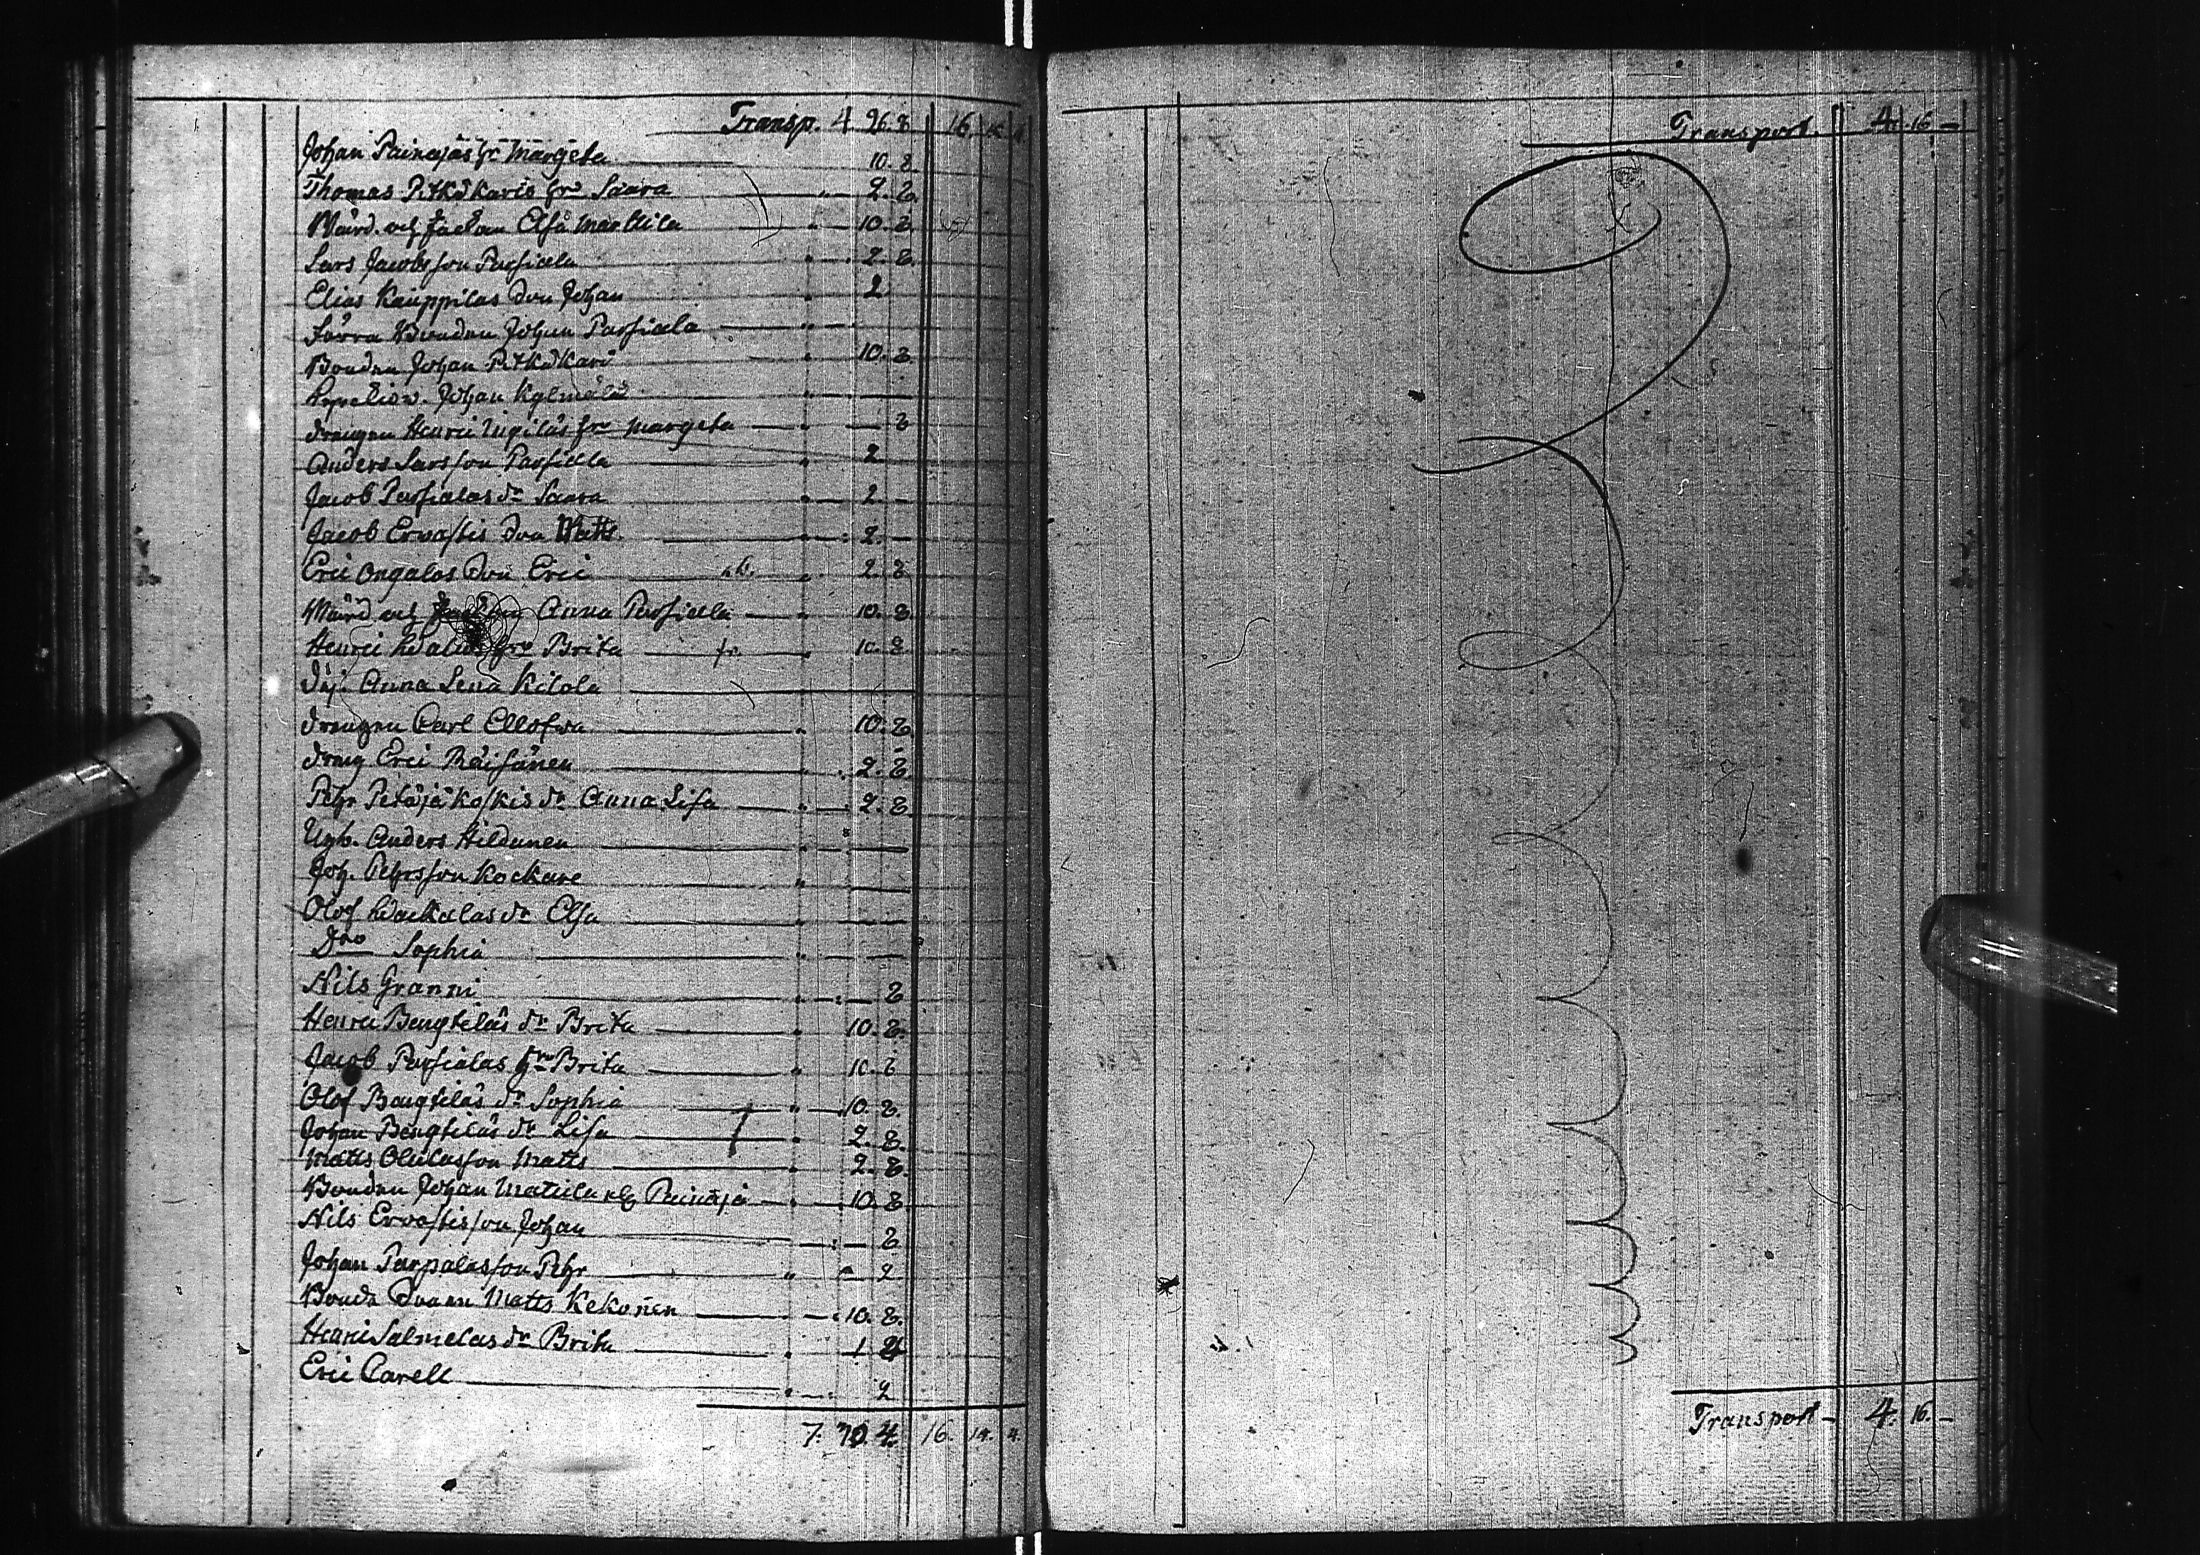 Transp. 4. 26. 8. 16. 14. 4.
Johan Painajas hr Margeta 10. 8.
Thomas Pitkäkaris hru Saara " 2. 8.
Wärd. och Enkan Elsa Marttila " 10. 8.
Lars Jacobsson Pasiala " 2. 8.
Elias Kauppilas Son Johan " 2
Förra Bonden Johan Pasiala " —
Bonden Johan Pitkäkari " 10. 8.
Johan Kylmälä " —
Drengen Henric hru Margeta " — 8
Anders Larsson Pasiala " 2
Jacob Pasialas dr Saara " 2 —
Jacob Ervastis Son Matts " 2. —
Eric Ongalas Son Eric " 2. 8
Wärd och Anna Pasiala " 10. 8.
Henric hru Brita " 10. 8
Anna Lena Kilola
Drengen Carl Ollofva " 10. 8.
Dreng Eric Räisänen " 2. 8
Pehr Petäjäkoskis dr Anna Lisa " 2. 8.
Ugk. Anders Hildunen " —
Joh. Pehrsson Kockare " —
Olof dr Elsa " —
Dito Sophia " —
Nils Granni " — 8
Henric Bengtiläs dr Brita " 10. 8.
Jacob Pasialas hru Brita " 10. 8
Olof Bengtiläs dr Sophia " 10. 8.
Johan Bengtiläs dr Lisa " 2. 8.
Matts Olulasson Matts " 2. 8.
Bonden Johan Matiila Painajä " 10. 8
Nils Ervastisson Johan — 8
Johan Parpalasson Pehr " 2
Bonde Sonen Matts Kekonen 10. 8.
Henric Salmelas dr Brita " 1 4
Eric Carell " 2
7. 70. 4. 16. 14. 4.
Transport. 4. 16. —
Transport — 4. 16. —